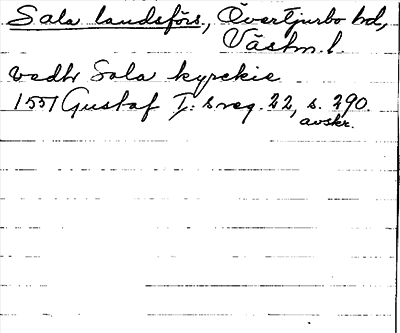 Sala landsförs., Övertjurbo hd,
Västm. l.
vedhr Sala kyrckie
1551 Gustaf I:s reg. 22, s. 290.
avskr.